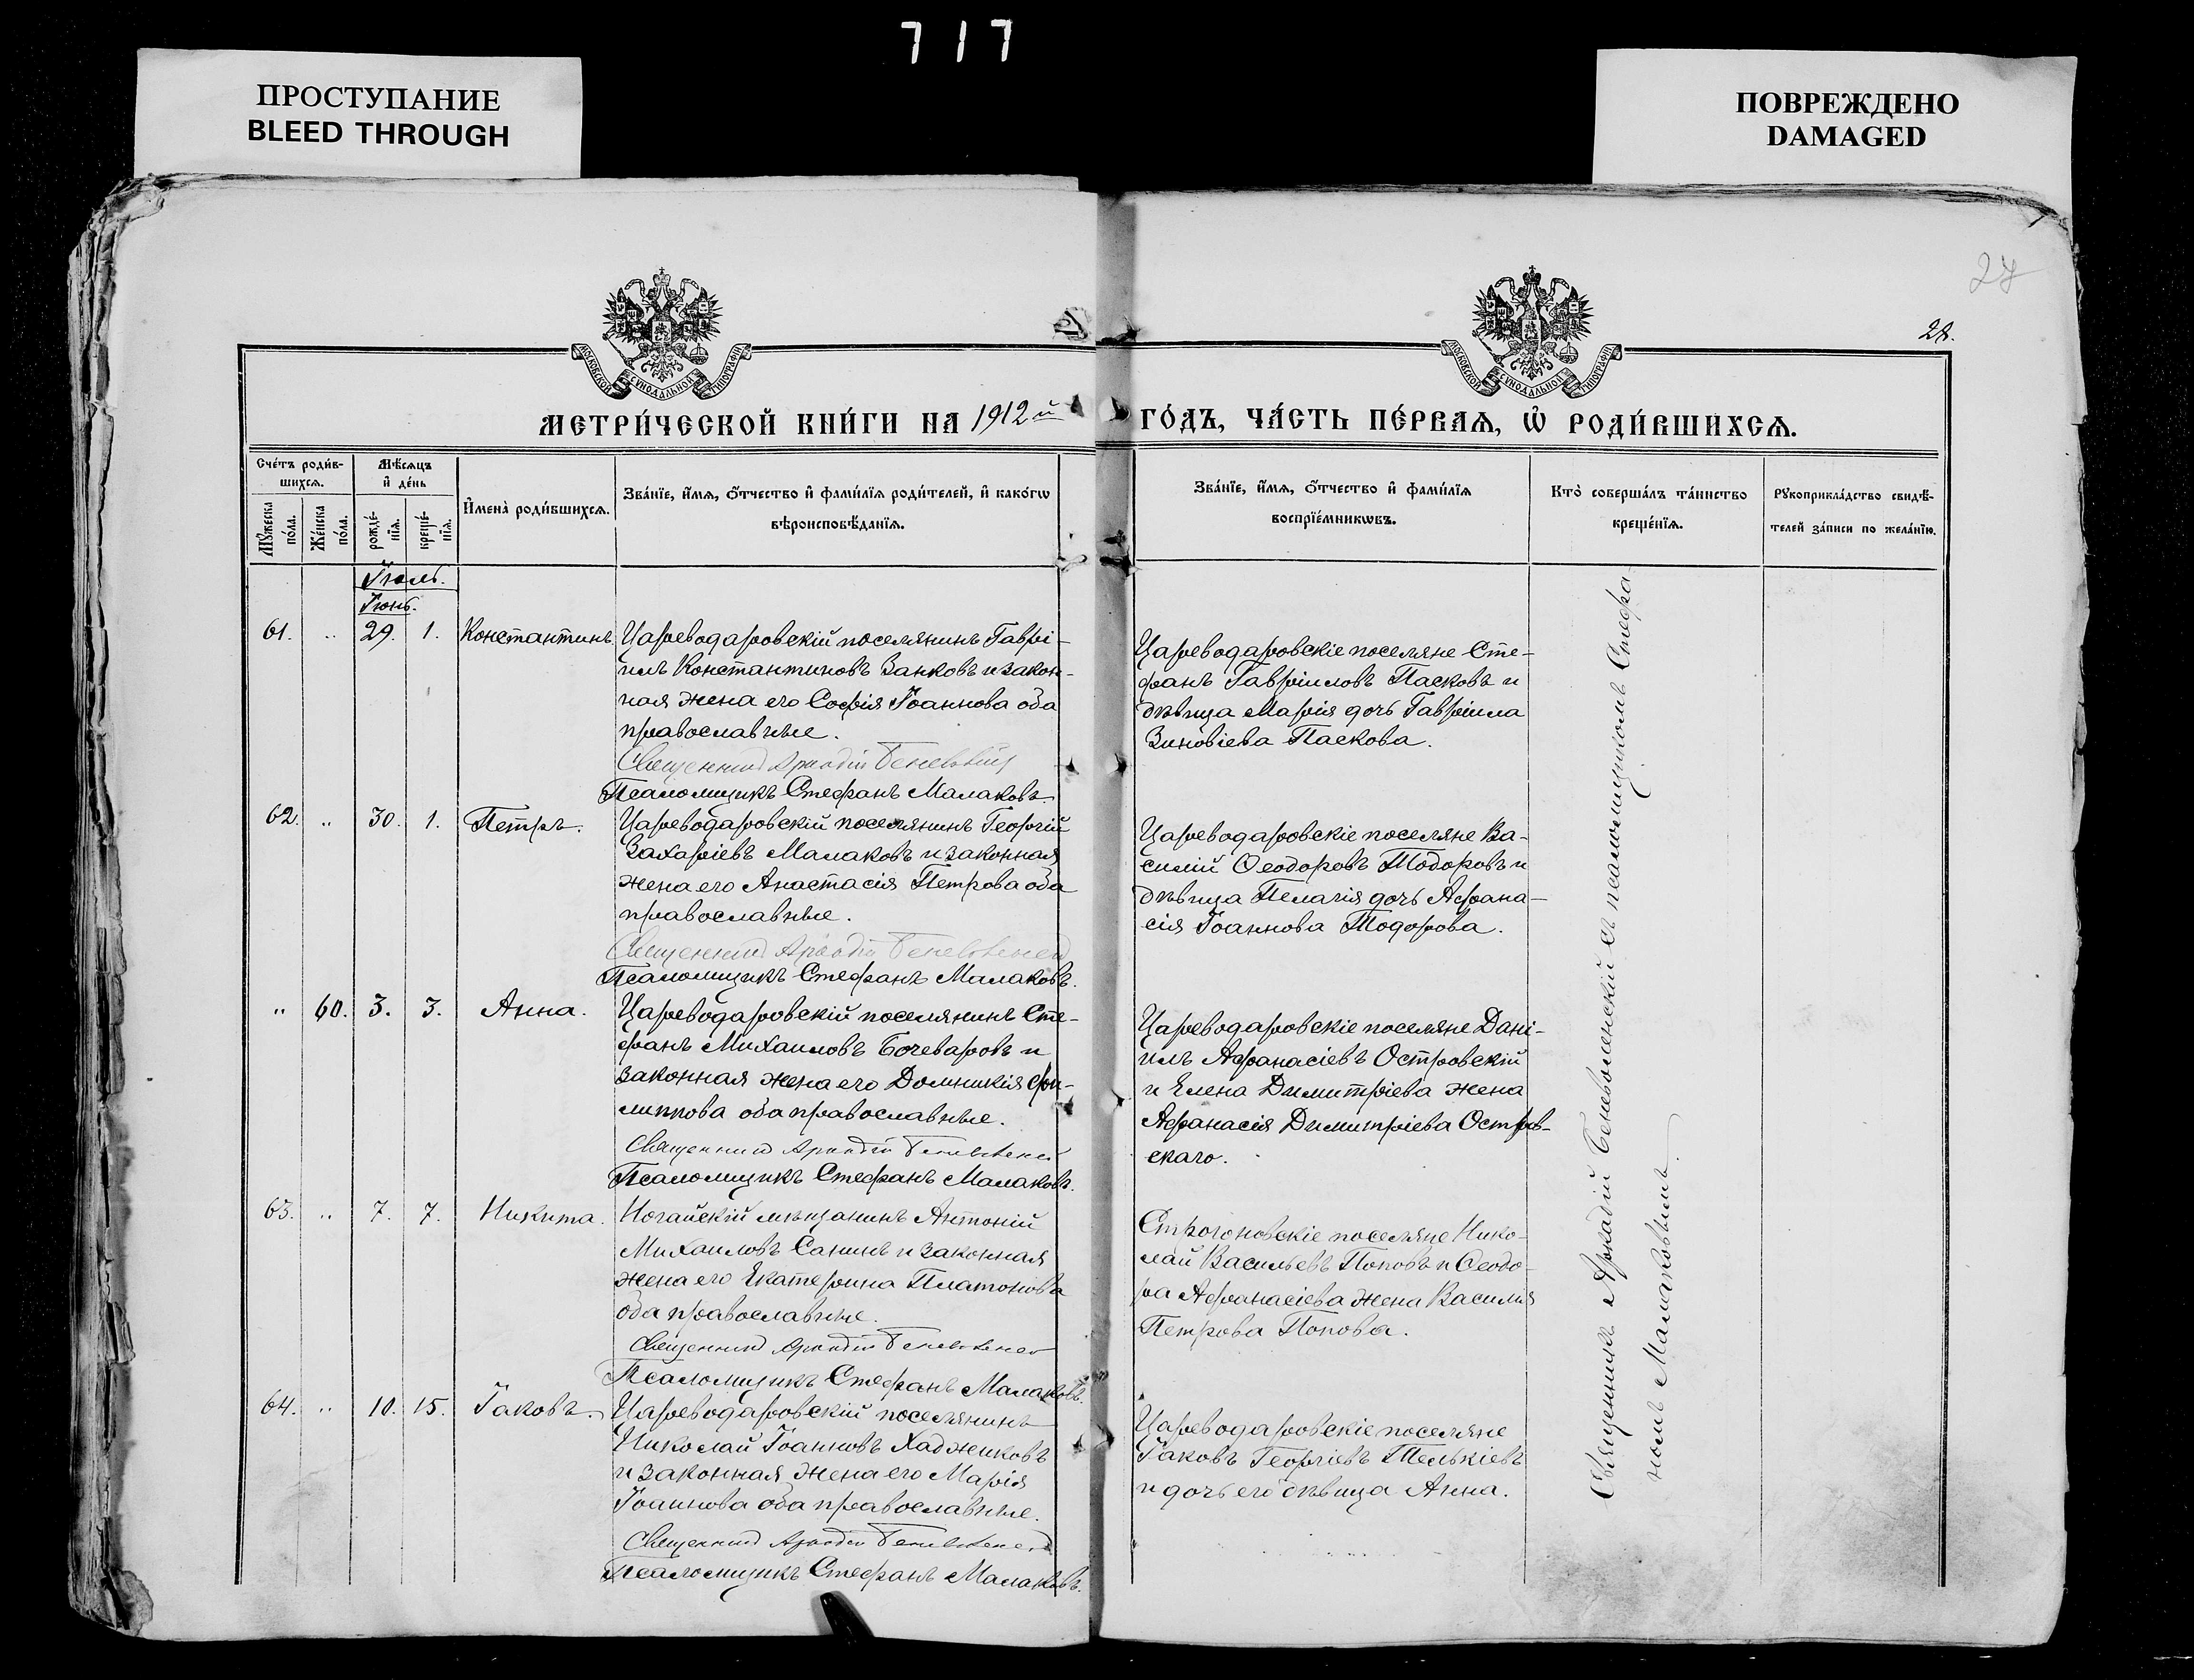 717
ПРОСТУПАНИЕ
BLEED THROUGH
ПОВРЕЖДЕНО
DAMAGED
27
28.
МОСКОВСКОЙ СѴНОДАЛЬНОЙ ТИПОГРАФІИ
МОСКОВСКОЙ СѴНОДАЛЬНОЙ ТИПОГРАФІИ
МЕТРИ́ЧЕСКОЙ КНИ́ГИ НА 1912й ГО́ДЪ, ЧА́СТЬ ПЕ́РВАЯ, Ѡ РОДИ́ВШИХСЯ.
Сче́тъ роди́в-
шихся.
Мѣ́сяцъ
и де́нь
Мꙋ́жеска
по́ла.
Же́нска
по́ла.
рожде́-
нїя.
креще́-
нїя.
И҆мена̀ роди́вшихся.
Зва́нїе, и҆́мя, ѻ҆́тчество и҆ фами́лїя роди́телей, и҆ како́гѡ
вѣроисповѣ́данїя.
Зва́нїе, и҆́мя, ѻ҆́тчество и҆ фами́лїя
воспрїе́мникѡвъ.
Кто̀ соверша́лъ та́инство
креще́нїя.
Рꙋкоприкла́дство свидѣ́-
телей за́писи по жела́нїю.
Іюль.
Іюнь.
61. „ 29. 1. Константинъ. Цареводаровскій поселянинъ Гаврі-
илъ Константиновъ Занковъ и закон-
ная жена его Софія Іоаннова оба
православные.
Священникъ Аркадій Беневоленскій
Псаломщикъ Стефанъ Малаковъ.
Цареводаровскіе поселяне Сте-
фанъ Гавріиловъ Пасковъ и
дѣвица Марія дочь Гавріила
Зиновіева Паскова.
62. „ 30. 1. Петръ. Цареводаровскій поселянинъ Георгій
Захаріевъ Малаковъ и законная
жена его Анастасія Петрова оба
православные.
Священникъ Аркадій Беневоленскій
Псаломщикъ Стефанъ Малаковъ.
Цареводаровскіе поселяне Ва-
силій Ѳеодоровъ Тодоровъ и
дѣвица Пелагія дочь Афана-
сія Іоаннова Тодорова.
„ 60. 3. 3. Анна. Цареводаровскій поселянинъ Сте-
фанъ Михаиловъ Бочеваровъ и
законная жена его Домникія Фи-
липпова оба православные.
Священникъ Аркадій Беневоленскій
Псаломщикъ Стефанъ Малаковъ.
Цареводаровскіе поселяне Дані-
илъ Афанасіевъ Островскій
и Елена Димитріева жена
Афанасія Димитріева Остров-
скаго.
63. „ 7. 7. Никита. Ногайскій мѣщанинъ Антоній
Михаиловъ Санинъ и законная
жена его Екатерина Платонова
оба православные.
Священникъ Аркадій Беневоленскій
Псаломщикъ Стефанъ Малаковъ.
Строгоновскіе поселяне Нико-
лай Васильевъ Поповъ и Ѳеодо-
ра Афанасіева жена Василія
Петрова Попова.
64. „ 10. 15. Іаковъ. Цареводаровскій поселянинъ
Николай Іоанновъ Хаджиковъ
и законная жена его Марія
Іоаннова оба православные.
Священникъ Аркадій Беневоленскій
Псаломщикъ Стефанъ Малаковъ.
Цареводаровскіе поселяне
Іаковъ Георгіевъ Телькіевъ
и дочь его дѣвица Анна.
Священникъ Аркадій Беневоленскій съ псаломщикомъ Стефа-
номъ Малаковымъ.